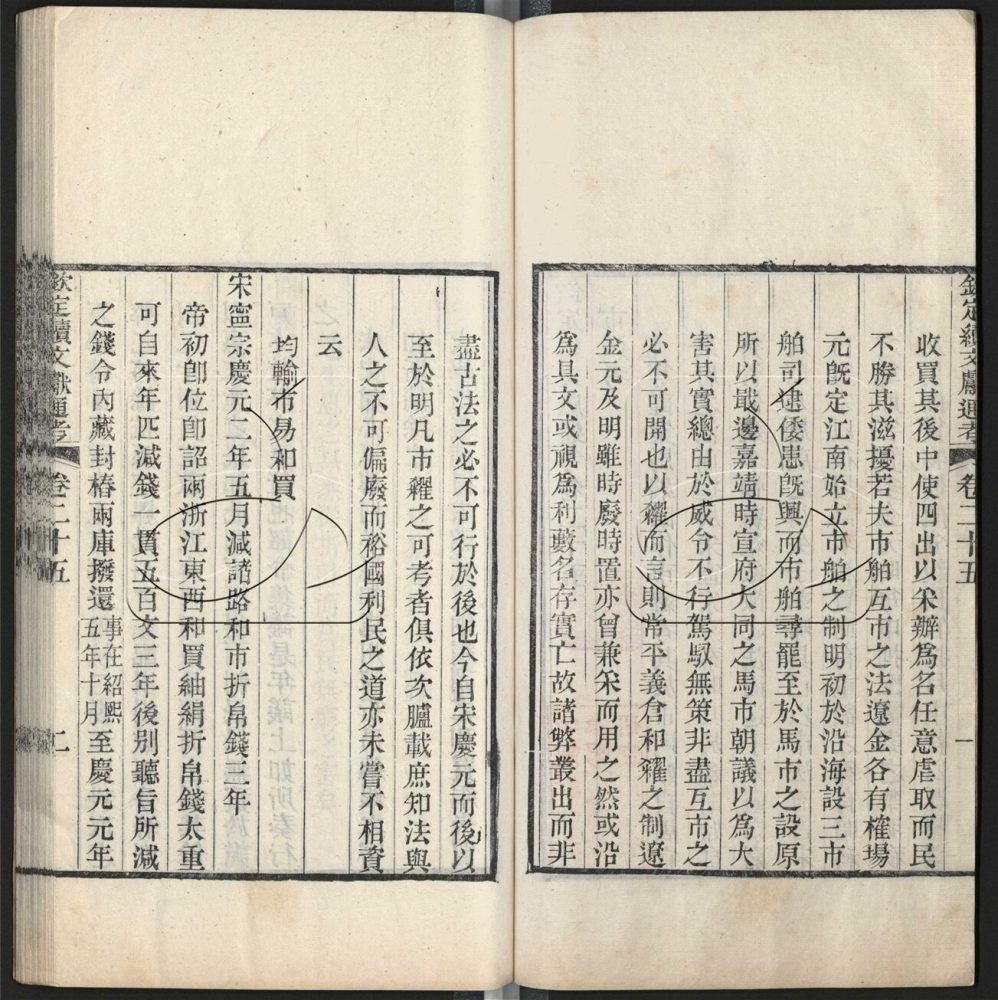 欽定續文獻通考 卷二十五 一
收買其後中使四出以采辦爲名任意虐取而民
不勝其滋擾若夫市舶互市之法遼金各有榷場
元旣定江南始立市舶之制明初於沿海設三市
舶司逮倭患旣興而市舶尋罷至於馬市之設原
所以戢邊嘉靖時宣府大同之馬市朝議以爲大
害其實總由於威令不行駕馭無策非盡互市之
必不可開也以糴而言則常平義倉和糴之制遼
金元及明雖時廢時置亦曾兼采而用之然或沿
爲具文或視爲利藪名存實亡故諸弊叢出而非
盡古法之必不可行於後也今自宋慶元而後以
至於明凡市糴之可考者俱依次臚載庶知法與
人之不可偏廢而裕國利民之道亦未嘗不相資
云
均輸市易和買
宋寧宗慶元二年五月減諸路和市折帛錢三年
帝初卽位卽詔兩浙江東西和買紬絹折帛錢太重
可自來年匹減錢一貫五百文三年後别聽旨所減
之錢令內藏封樁兩庫撥還事在紹熙五年十月至慶元元年
欽定續文獻通考 卷二十五 二